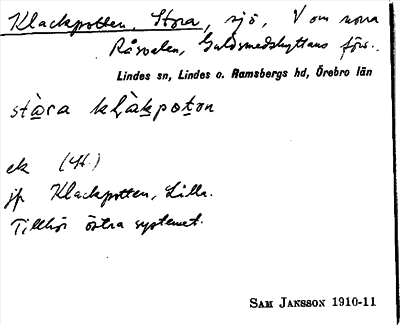 Klackpotten, Stora, sjö, V om norra
Råsvalen, Guldsmedshyttans förs.
Lindes sn, Lindes o. Ramsbergs hd, Örebro län
stɑ̀ra klàkpotən
ek (H.)
jfr Klackpotten, Lilla.
Tillhör östra systemet.
SAM JANSSON 1910-11